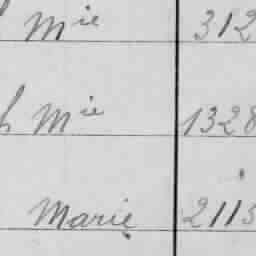 Mie 312
h Mie 1328
Marie 2113